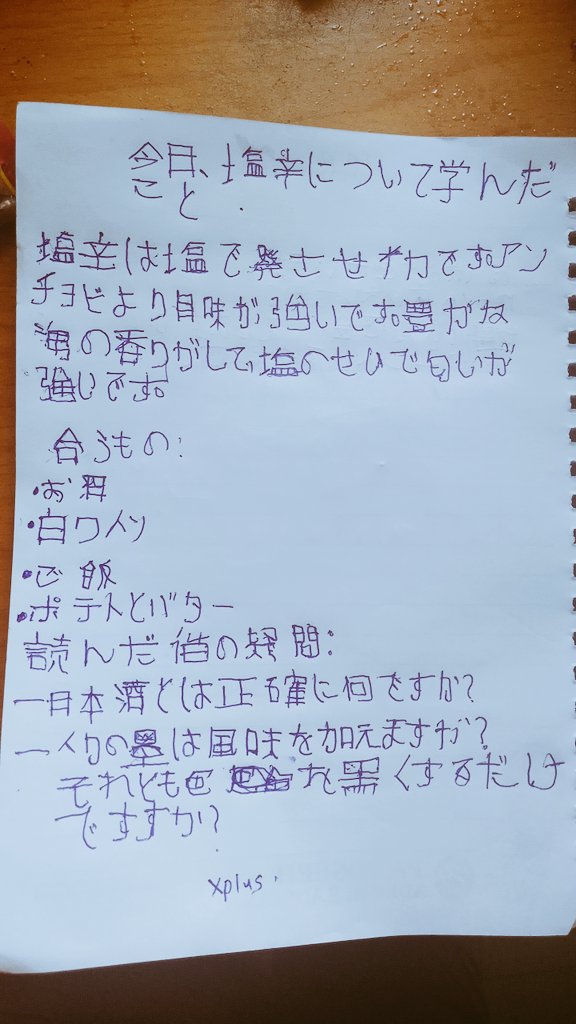 今日、塩辛について学んだ
こと
塩辛は塩で発させイカです。アン
チョビより旨味が強いです。豊かな
海の香りがして、塩のせいで匂いが
強いです。
合うもの:
・お酒
・白ワイン
・ご飯
・ポテトとバター
読んだ後の疑問:
一日本酒とは正確に何ですか?
一イカの墨は風味を加えますが?
それとも色を黒くするだけ
ですすか?
xplus.